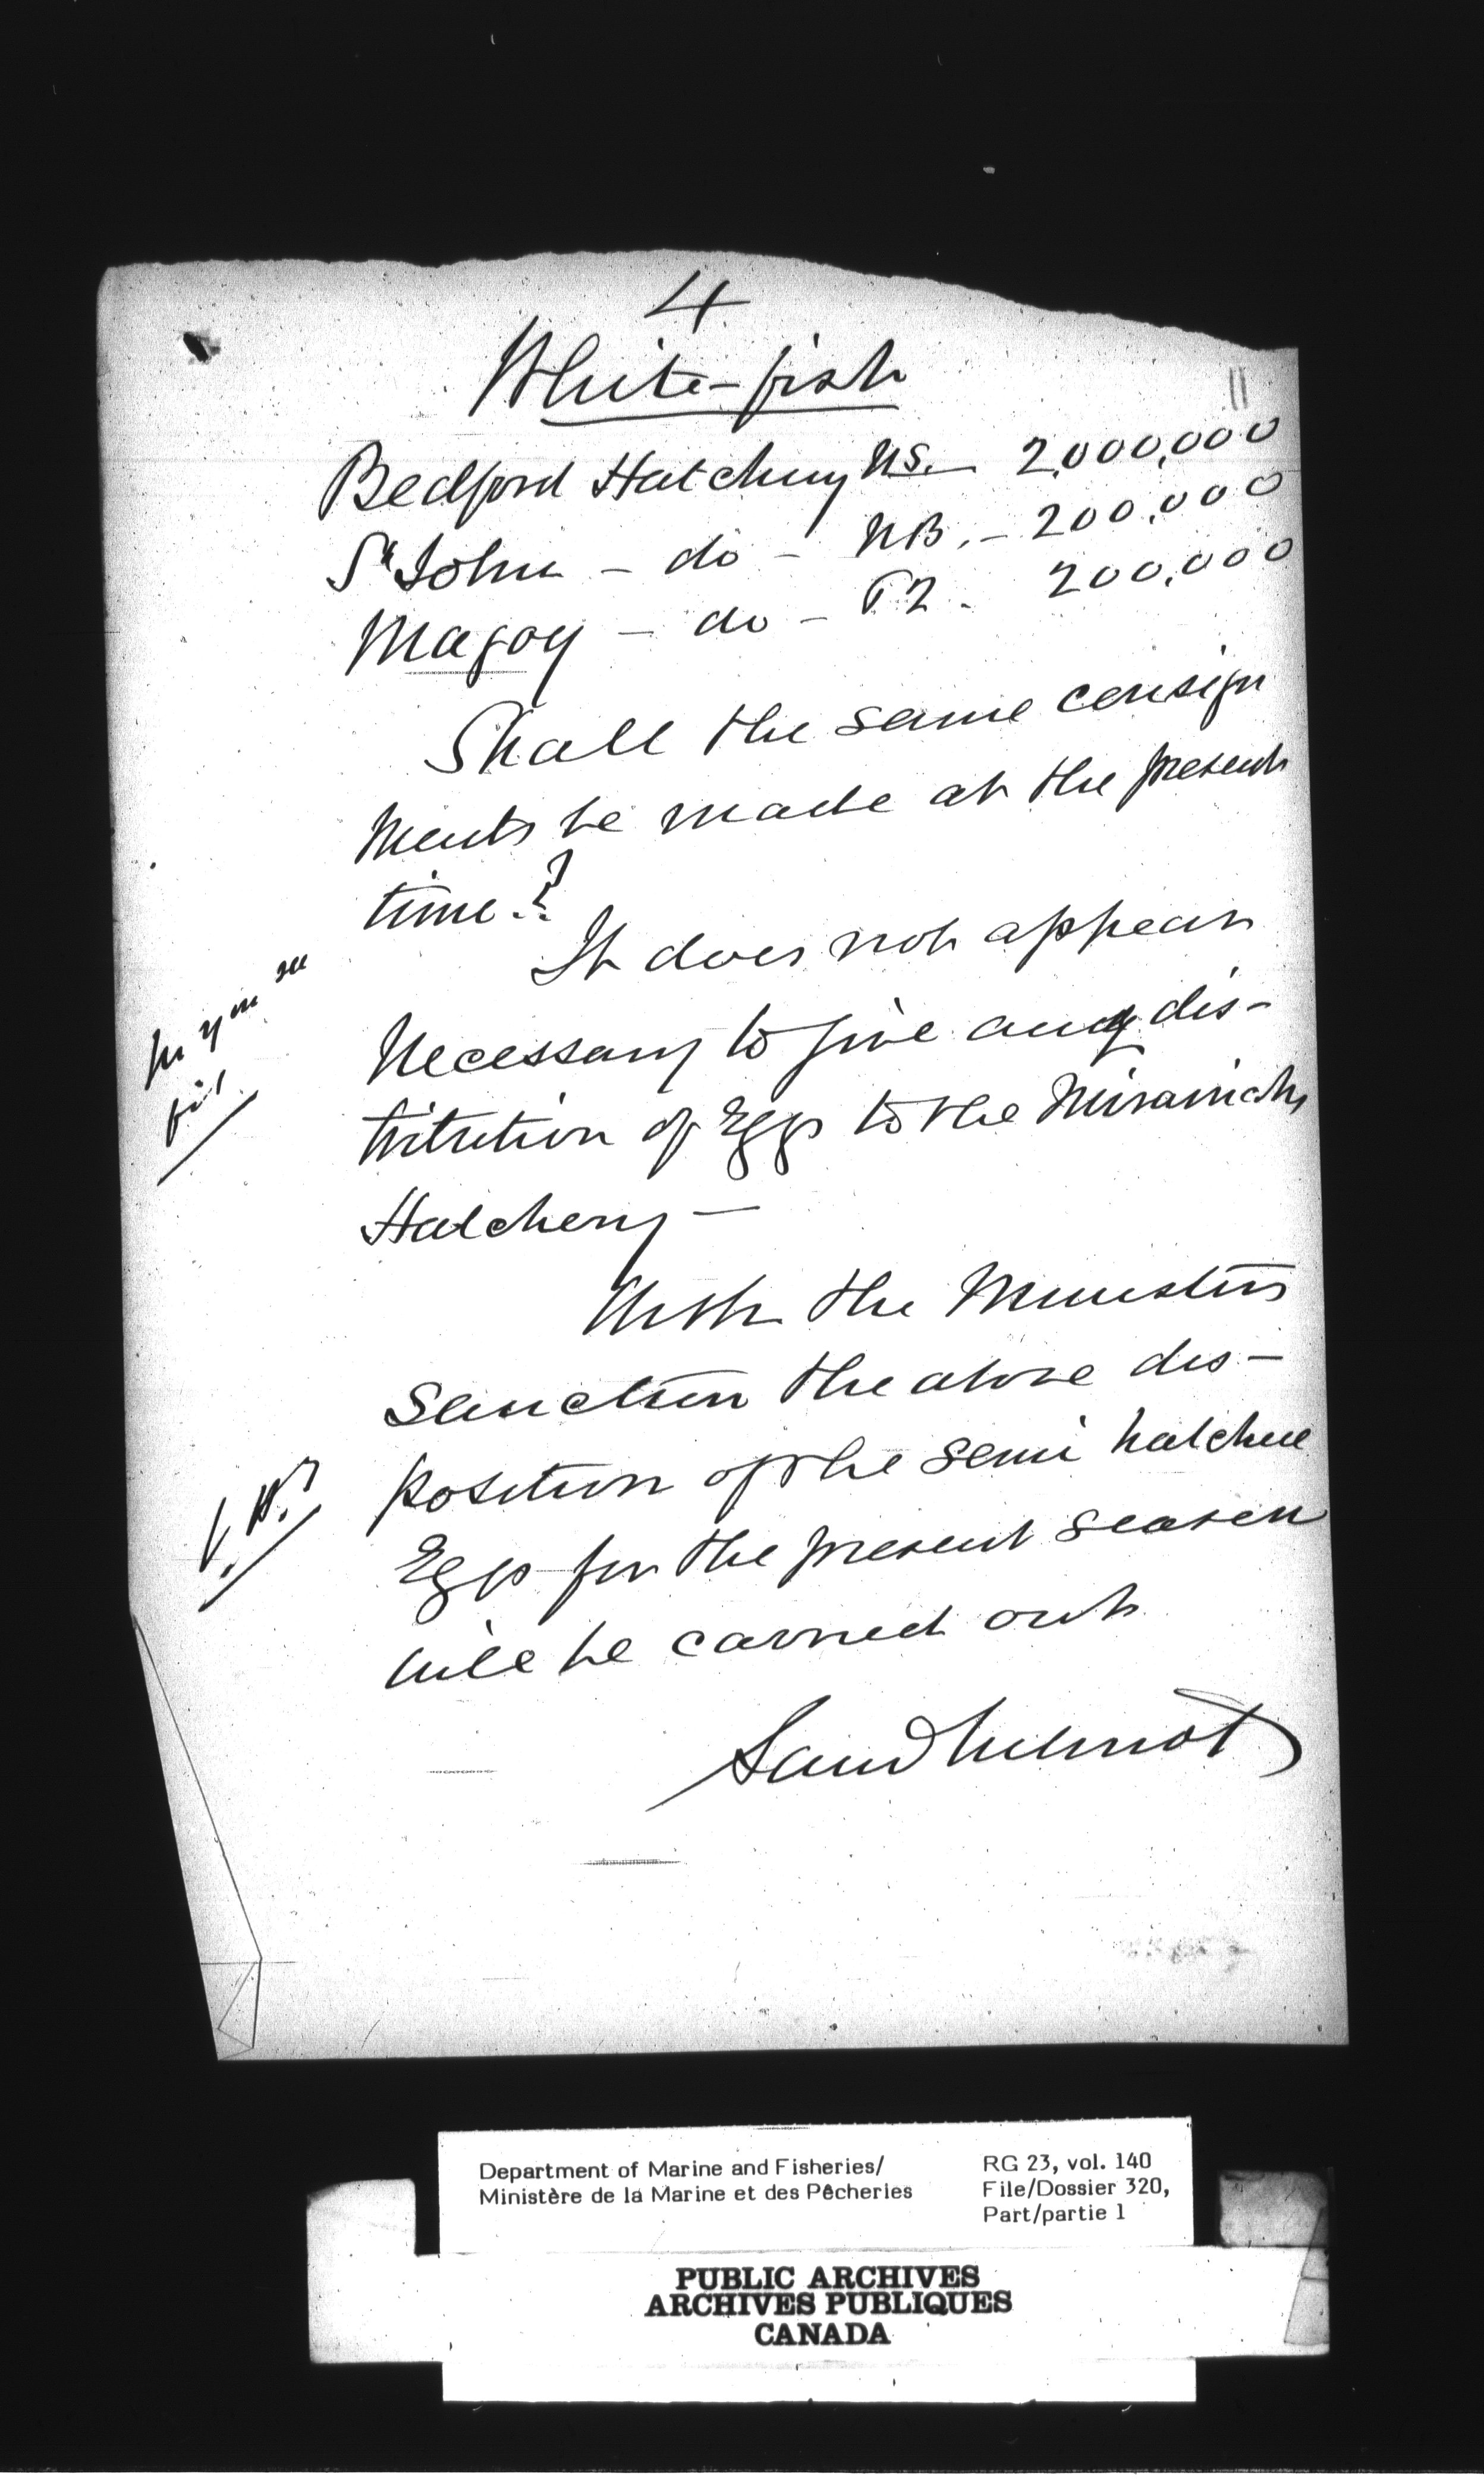 4
11
White-fish
Bedford Hatchery NS. — 2,000,000
St John — do — NB. — 200,000
Magog — do — P2. 200,000
Shall the same consign
ments be made at the present
time?
It does not appear
necessary to give any dis-
tribution of Eggs to the Miramichi
Hatchery —
as you see
fit
With the Ministers
sanction the above dis-
position of the semi hatched
Eggs for the present season
will be carried out
Saml Wilmot
Department of Marine and Fisheries/
Ministère de la Marine et des Pêcheries
RG 23, vol. 140
File/Dossier 320,
Part/partie 1
PUBLIC ARCHIVES
ARCHIVES PUBLIQUES
CANADA